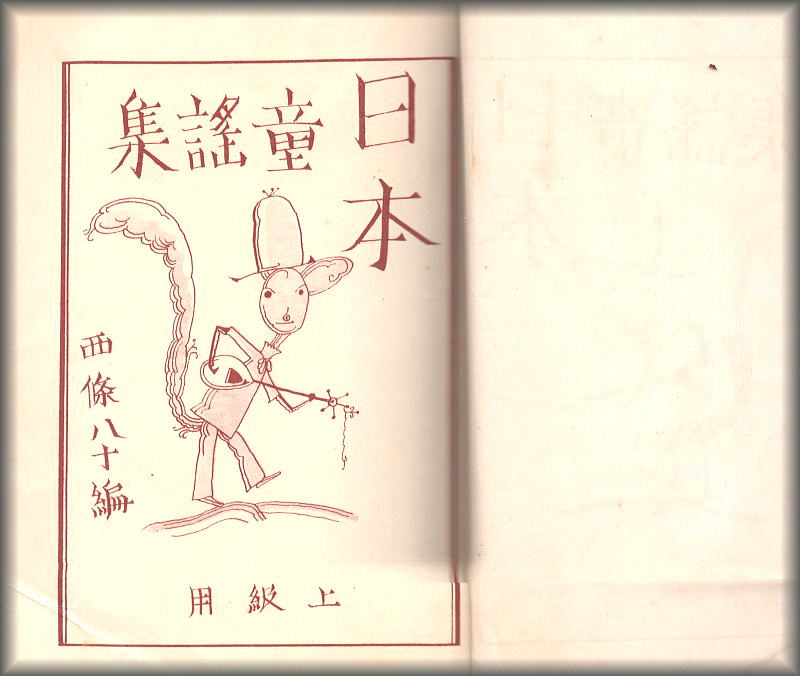 日本
童謠集
西條八十編
上級用